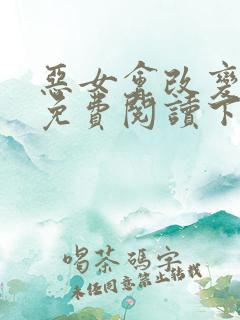 惡女會改變
免費閱讀下
喝茶碼字
未經同意禁止轉載